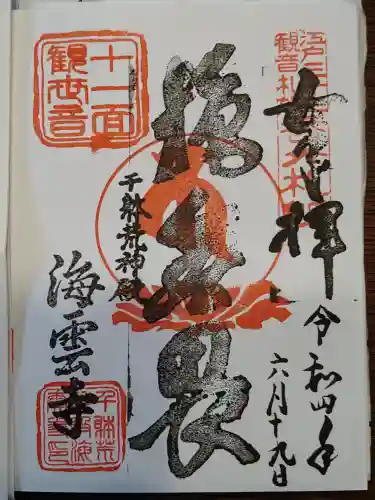 江戸三
観音札
奉拝
令和四年
六月十九日
施無畏
千躰荒神殿
十一面
観世音
海雲寺
千躰荒